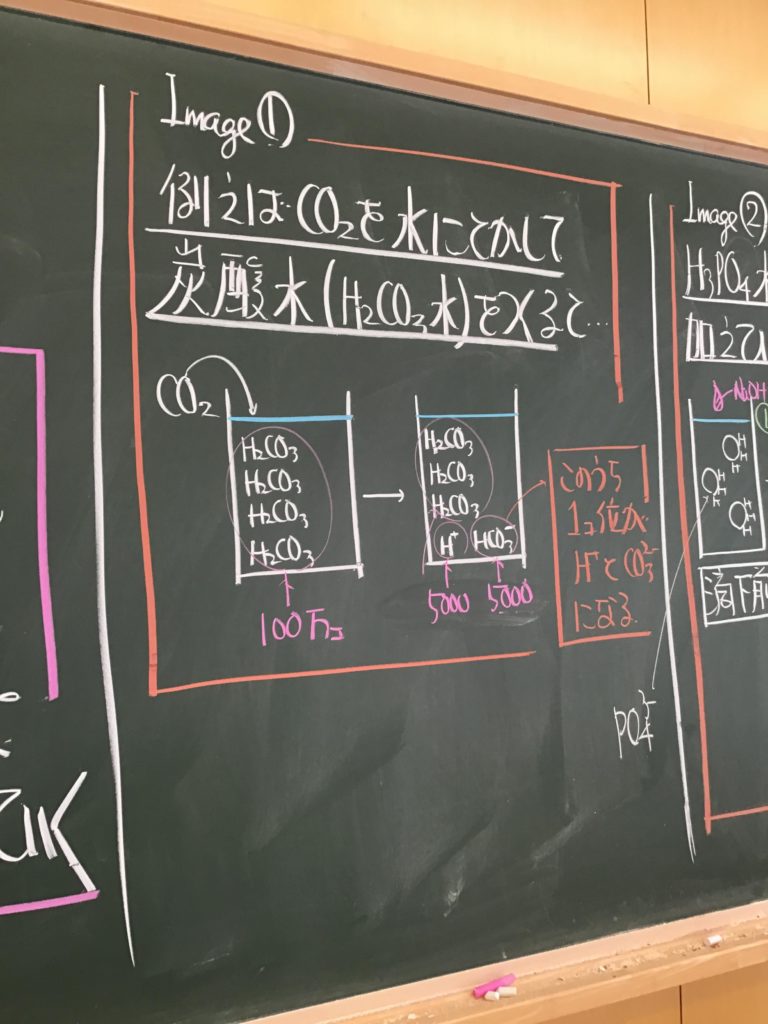 Image①
例えばCO₂を水にとかして
炭酸水(H₂CO₃水)をつくると…
CO₂
H₂CO₃
H₂CO₃
H₂CO₃
H₂CO₃
100万コ
→
H₂CO₃
H₂CO₃
H₂CO₃
H⁺ HCO₃⁻
5000 5000
このうち
1コ位が
H⁺とCO₃²⁻
になる
Image②
H₃PO₄水
加えてい
NaOH
①
滴下前